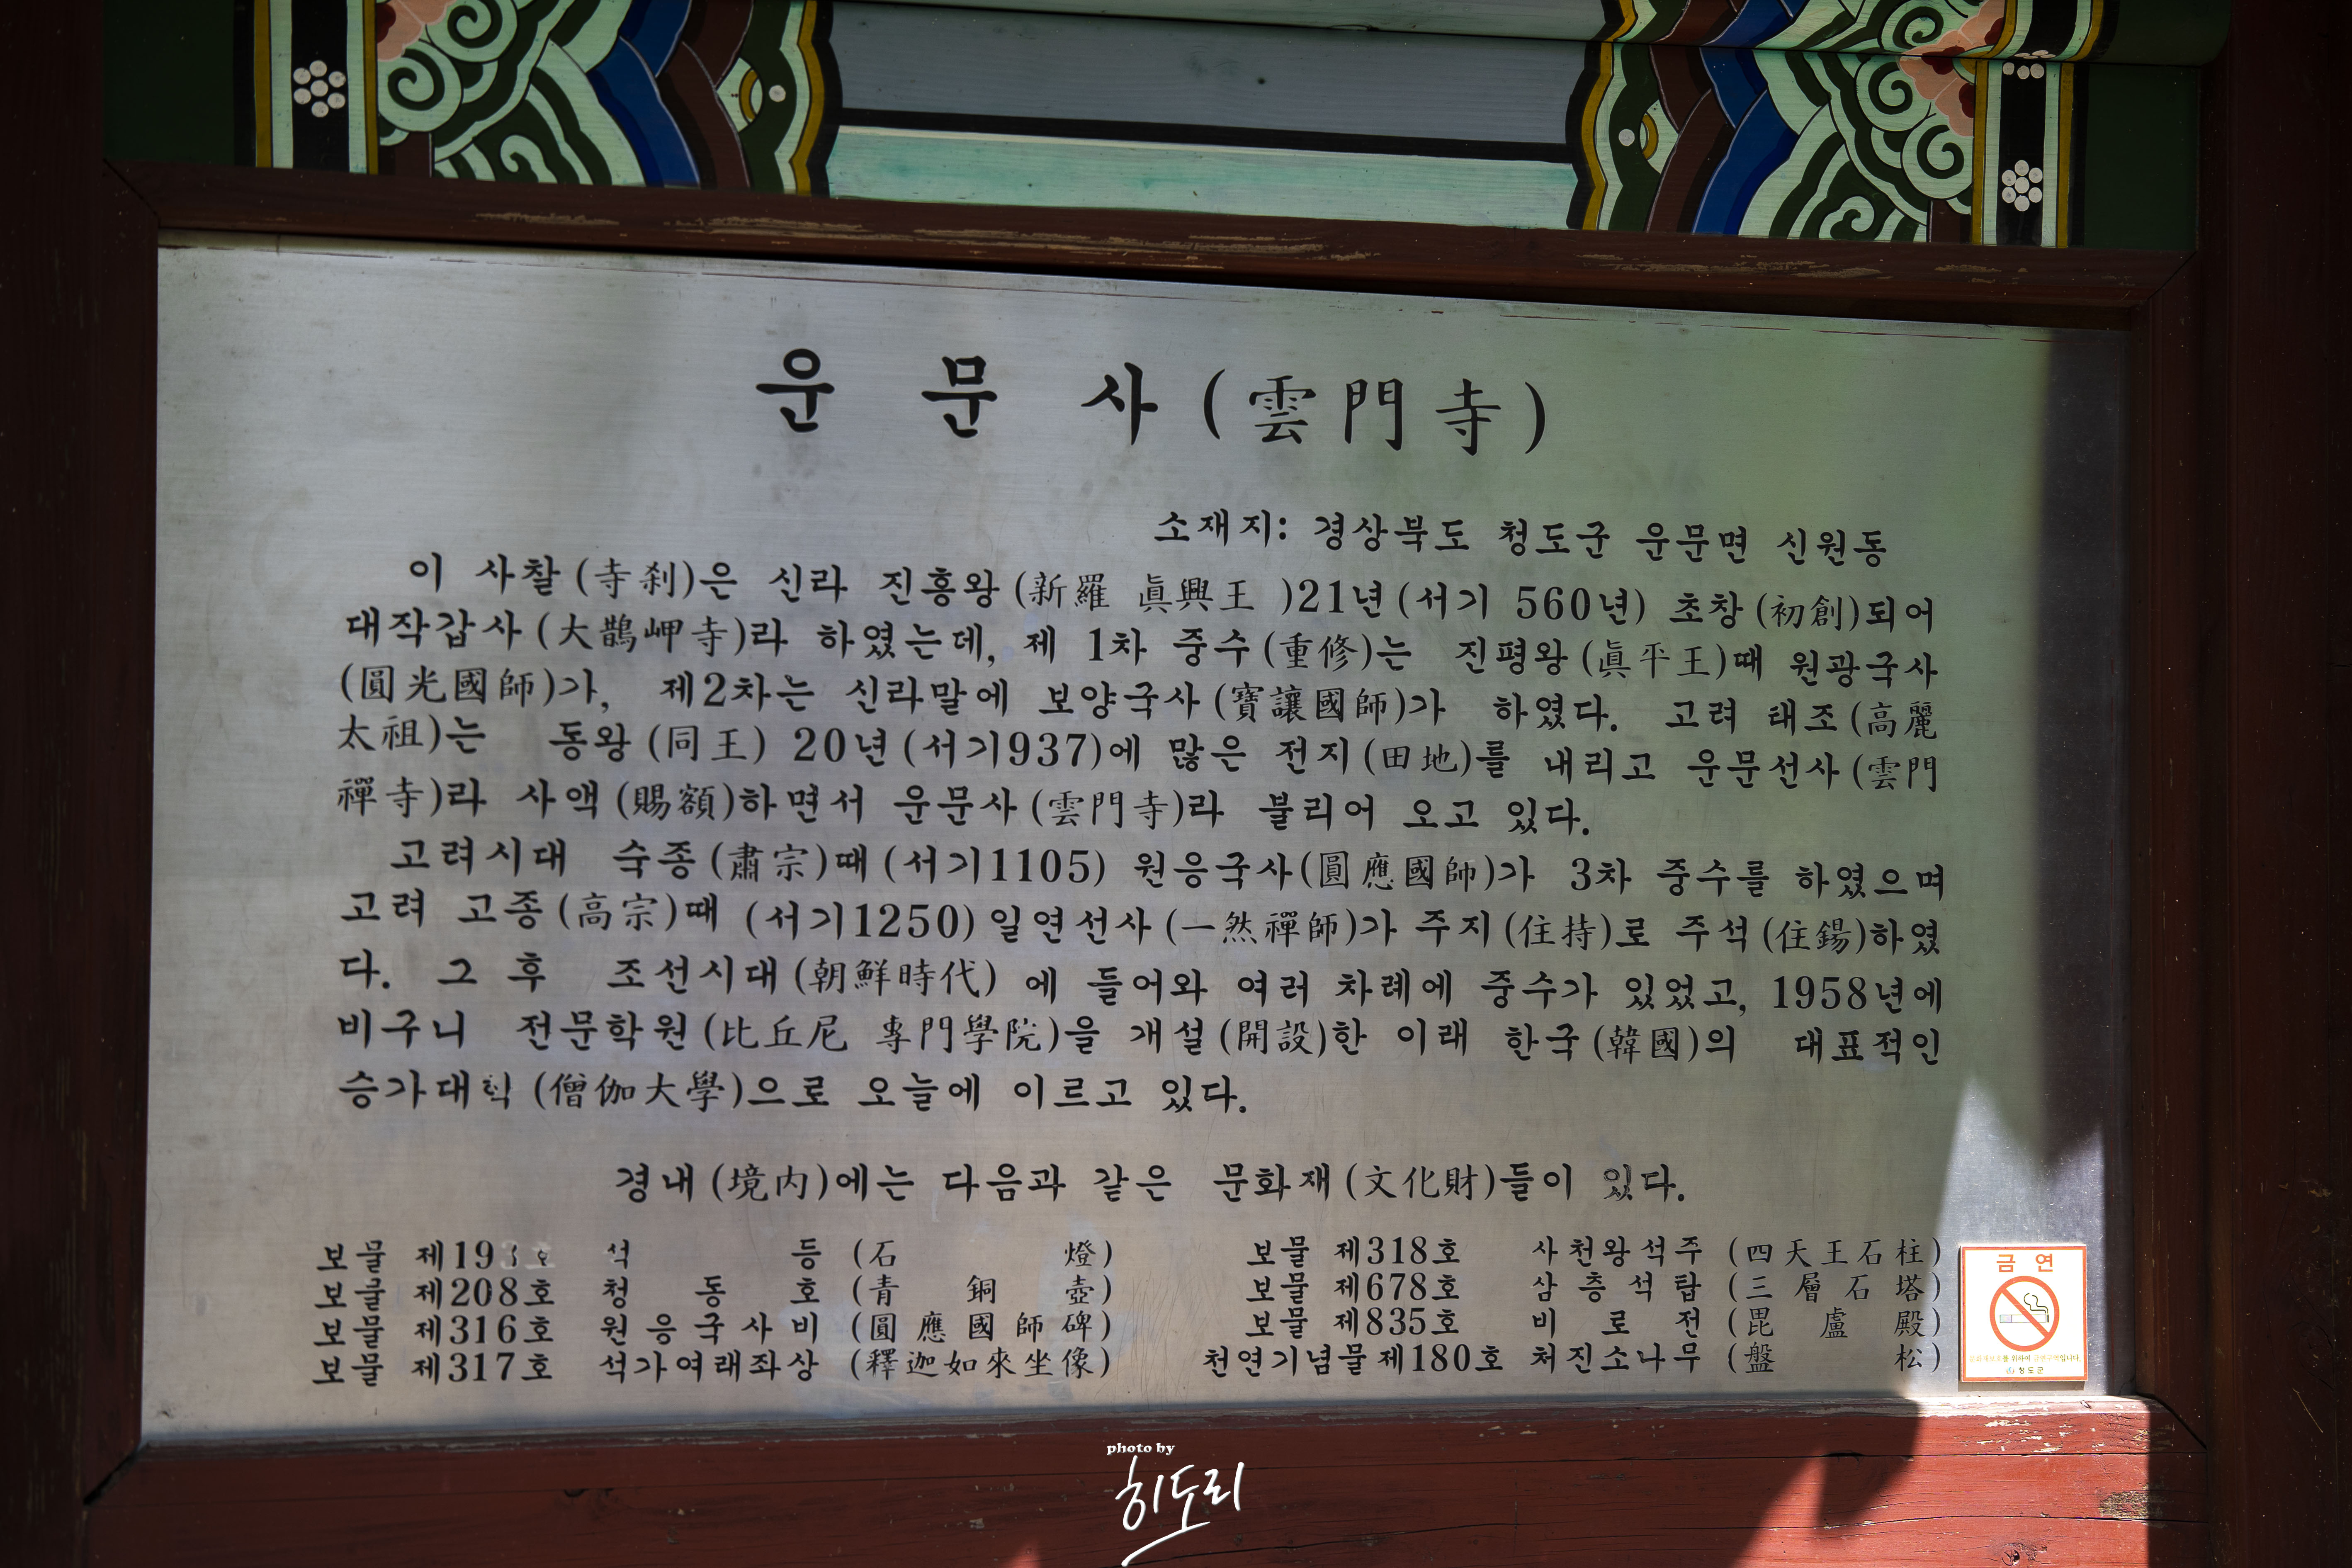 운 문 사 (雲門寺)
소재지: 경상북도 청도군 운문면 신원동
이 사찰(寺刹)은 신라 진흥왕(新羅 眞興王 )21년(서기 560년) 초창(初創)되어
대작갑사(大鵲岬寺)라 하였는데, 제 1차 중수(重修)는 진평왕(眞平王)때 원광국사
(圓光國師)가, 제2차는 신라말에 보양국사(寶讓國師)가 하였다. 고려 태조(高麗
太祖)는 동왕(同王) 20년(서기937)에 많은 전지(田地)를 내리고 운문선사(雲門
禪寺)라 사액(賜額)하면서 운문사(雲門寺)라 불리어 오고 있다.
고려시대 숙종(肅宗)때(서기1105) 원응국사(圓應國師)가 3차 중수를 하였으며
고려 고종(高宗)때 (서기1250)일연선사(一然禪師)가 주지(住持)로 주석(住錫)하였
다. 그 후 조선시대(朝鮮時代) 에 들어와 여러 차례에 중수가 있었고, 1958년에
비구니 전문학원(比丘尼 專門學院)을 개설(開設)한 이래 한국(韓國)의 대표적인
승가대학(僧伽大學)으로 오늘에 이르고 있다.
경내(境內)에는 다음과 같은 문화재(文化財)들이 있다.
보물 제193호 석 등 (石 燈)
보물 제208호 청 동 호 (青 銅 壺)
보물 제316호 원응국사비 (圓應國師碑)
보물 제317호 석가여래좌상 (釋迦如來坐像)
보물 제318호 사천왕석주 (四天王石柱)
보물 제678호 삼층석탑 (三層石塔)
보물 제835호 비 로 전 (毘盧殿)
천연기념물제180호 처진소나무 (盤 松)
금 연
청도군
photo by
히도리